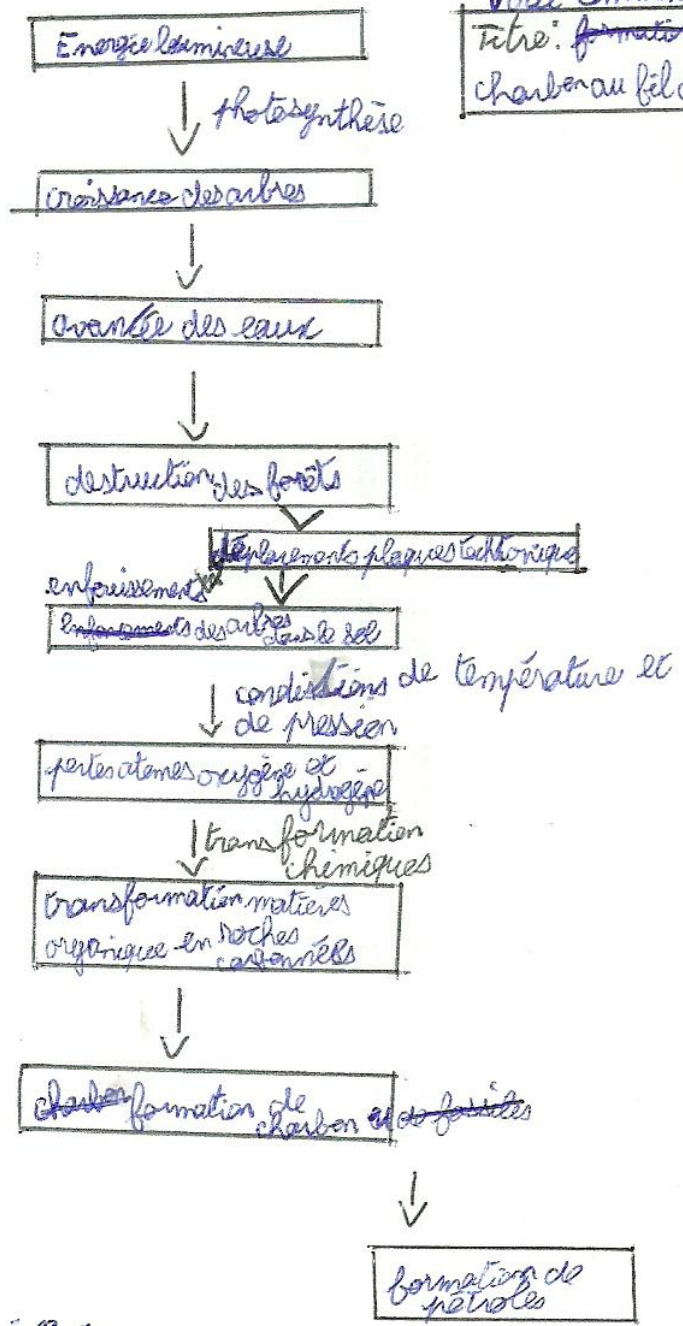 Titre: formatio
charbon au fil d
Energie lumineuse
photosynthèse
croissance des arbres
avancée des eaux
destruction des forêts
déplacements plaques techtonique
enfouissements
enfoncements des arbres dans le sol
conditions de température et
de pression
pertes atomes oxygène et
hydrogène
transformation
chimiques
transformation matières
organique en roches
carbonnées
charbon formation de
charbon et de fossiles
formation de
pétroles